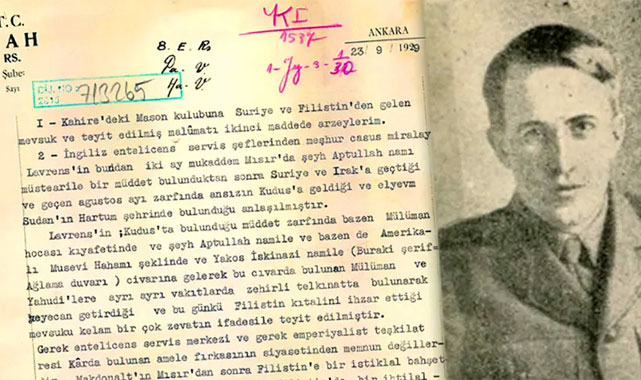 T.C.
AH
RS.
Şube:
Sayı
KI
1537
B. E. Rs
1 - Jy - 3 - 1/30
ANKARA
23/ 9 / 1929
713265
I - Kahire'deki Mason kulubuna Suriye ve Filistin'den gelen
mevsuk ve teyit edilmiş malûmatı ikinci maddede arzeylerim.
2 - İngiliz entelicens servis şeflerinden meşhur casus miralay
Lavrens'in bundan iki ay mukaddem Mısır'da şeyh Aptullah namı
müstearile bir müddet bulunduktan sonra Suriye ve Irak'a geçtiği
ve geçen agustos ayı zarfında ansızın Kudus'a geldiği ve elyevm
Sudan'ın Hartum şehrinde bulunduğu anlaşılmıştır.
Lavrens'in ;Kudus'ta bulunduğu müddet zarfında bazen Mülüman
hocası kıyafetinde ve şeyh Aptullah namile ve bazen de Amerika-
lı Musevi Hahamı şeklinde ve Yakos İskinazi namile (Buraki şerif=
Ağlama duvarı ) civarına gelerek bu civarda bulunan Mülüman ve
Yahudi'lere ayrı ayrı vakıtlarda zehirli telkınatta bulunarak
heyecan getirdiği ve bu günkü Filistin kıtalini ihzar ettiği
mevsuku kelam bir çok zevatın ifadesile teyit edilmiştir.
Gerek entelicens servis merkezi ve gerek emperiyalist teşkilat
resi Kârda bulunan amele fırkasının siyasetinden memnun değiller-
dir. Makdonalt'ın Mısır'dan sonra Filistin'e bir istiklal bahşet-
bir ihtilal-